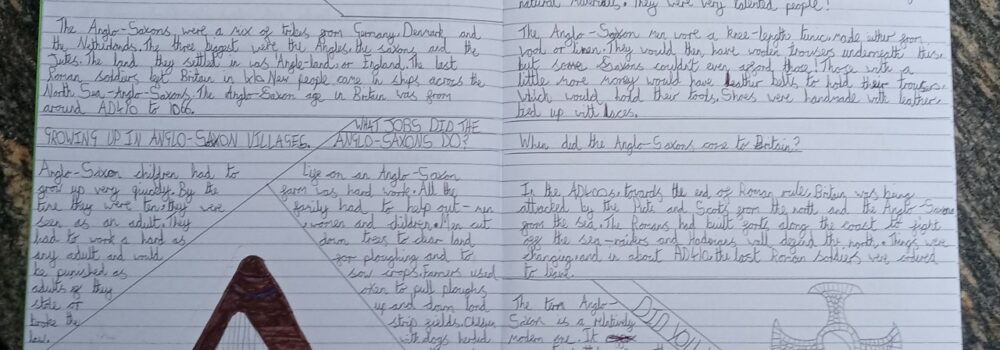 The Anglo-Saxons were a mix of tribes from Germany, Denmark and
the Netherlands. The three biggest were the Angles, the saxons and the
Jutes. The land they settled in was 'Angle-land', or England. The last
Roman soldiers left Britain in 410. New people came in ships across the
North Sea-Anglo-Saxons. The Anglo-Saxon age in Britain was from
around AD410 to 1066.
GROWING UP IN ANGLO-SAXON VILLAGES.
Anglo-Saxon children had to
grow up very quickly. By the
time they were ten, they were
seen as an adult. They
had to work a hard as
any adult and would
be punished as
adults if they
stole or
broke the
law.
WHAT JOBS DID THE
ANGLO-SAXONS DO?
Life on an Anglo-Saxon
farm was hard work. All the
family had to help out-men
, women and children. Men cut
down trees to clear land
for ploughing and to
sow crops. Farmers used
oxen to pull ploughs
up and down long
strip fields. Children
with dogs herded
natural materials. They were very talented people!
The Anglo-Saxon men wore a knee-length tunic made either from
wool or linen. They would then have woolen trousers underneath these
but some Saxons couldn't even afford those! Those with a
little more money would have leather belts to hold their trousers
which would hold their tools. Shoes were handmade with leather
tied up with laces.
When did the Anglo-Saxons come to Britain?
In the AD400s, towards the end of Roman rule, Britain was being
attacked by the Picts and Scots from the north and the Anglo-Saxons
from the sea. The Romans had built forts along the coast to fight
off the sea-raiders and Hadrians wall defend the north. Things were
changing and in about AD410, the last Roman soldiers were ordered
to leave.
The term Anglo-
Saxon is a relatively
modern one. It
DID YOU